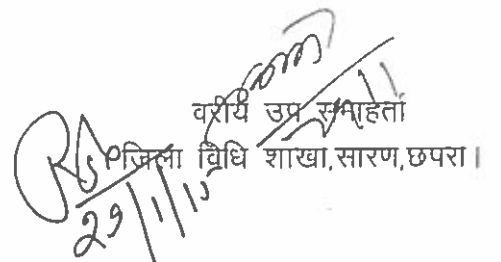 वरीय उप समाहर्ता
जिला विधि शाखा,सारण,छपरा।
29/1/15